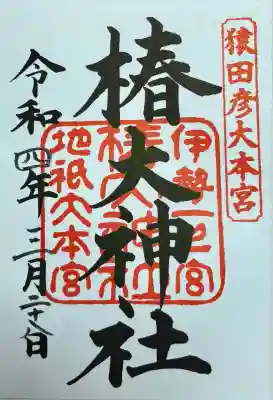 猿田彦大本宮
伊勢一之宮
椿大神社
椿大神社
地祇大本宮
令和四年三月